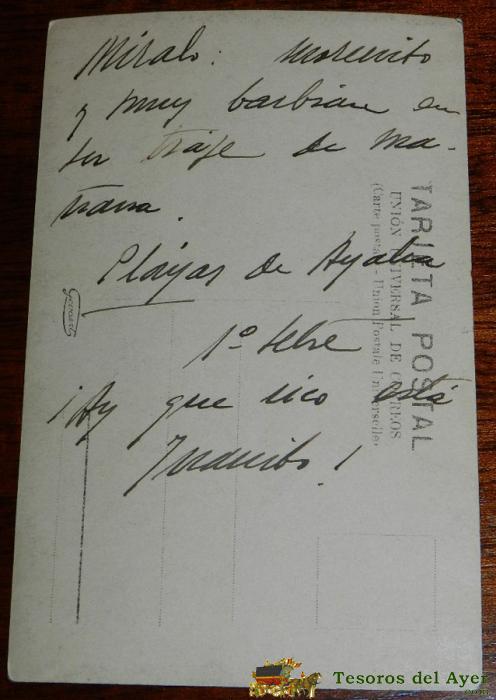 Míralo: morenito
y muy barbian en
su traje de ma-
trava.
Playas de Ayalea
1º Sebre
¡Ay que rico está
Juanito!
TARJETA POSTAL
UNIÓN UNIVERSAL DE CORREOS
(Carte postale - Union Postale Universelle)
Tesoros del Ayer
.com